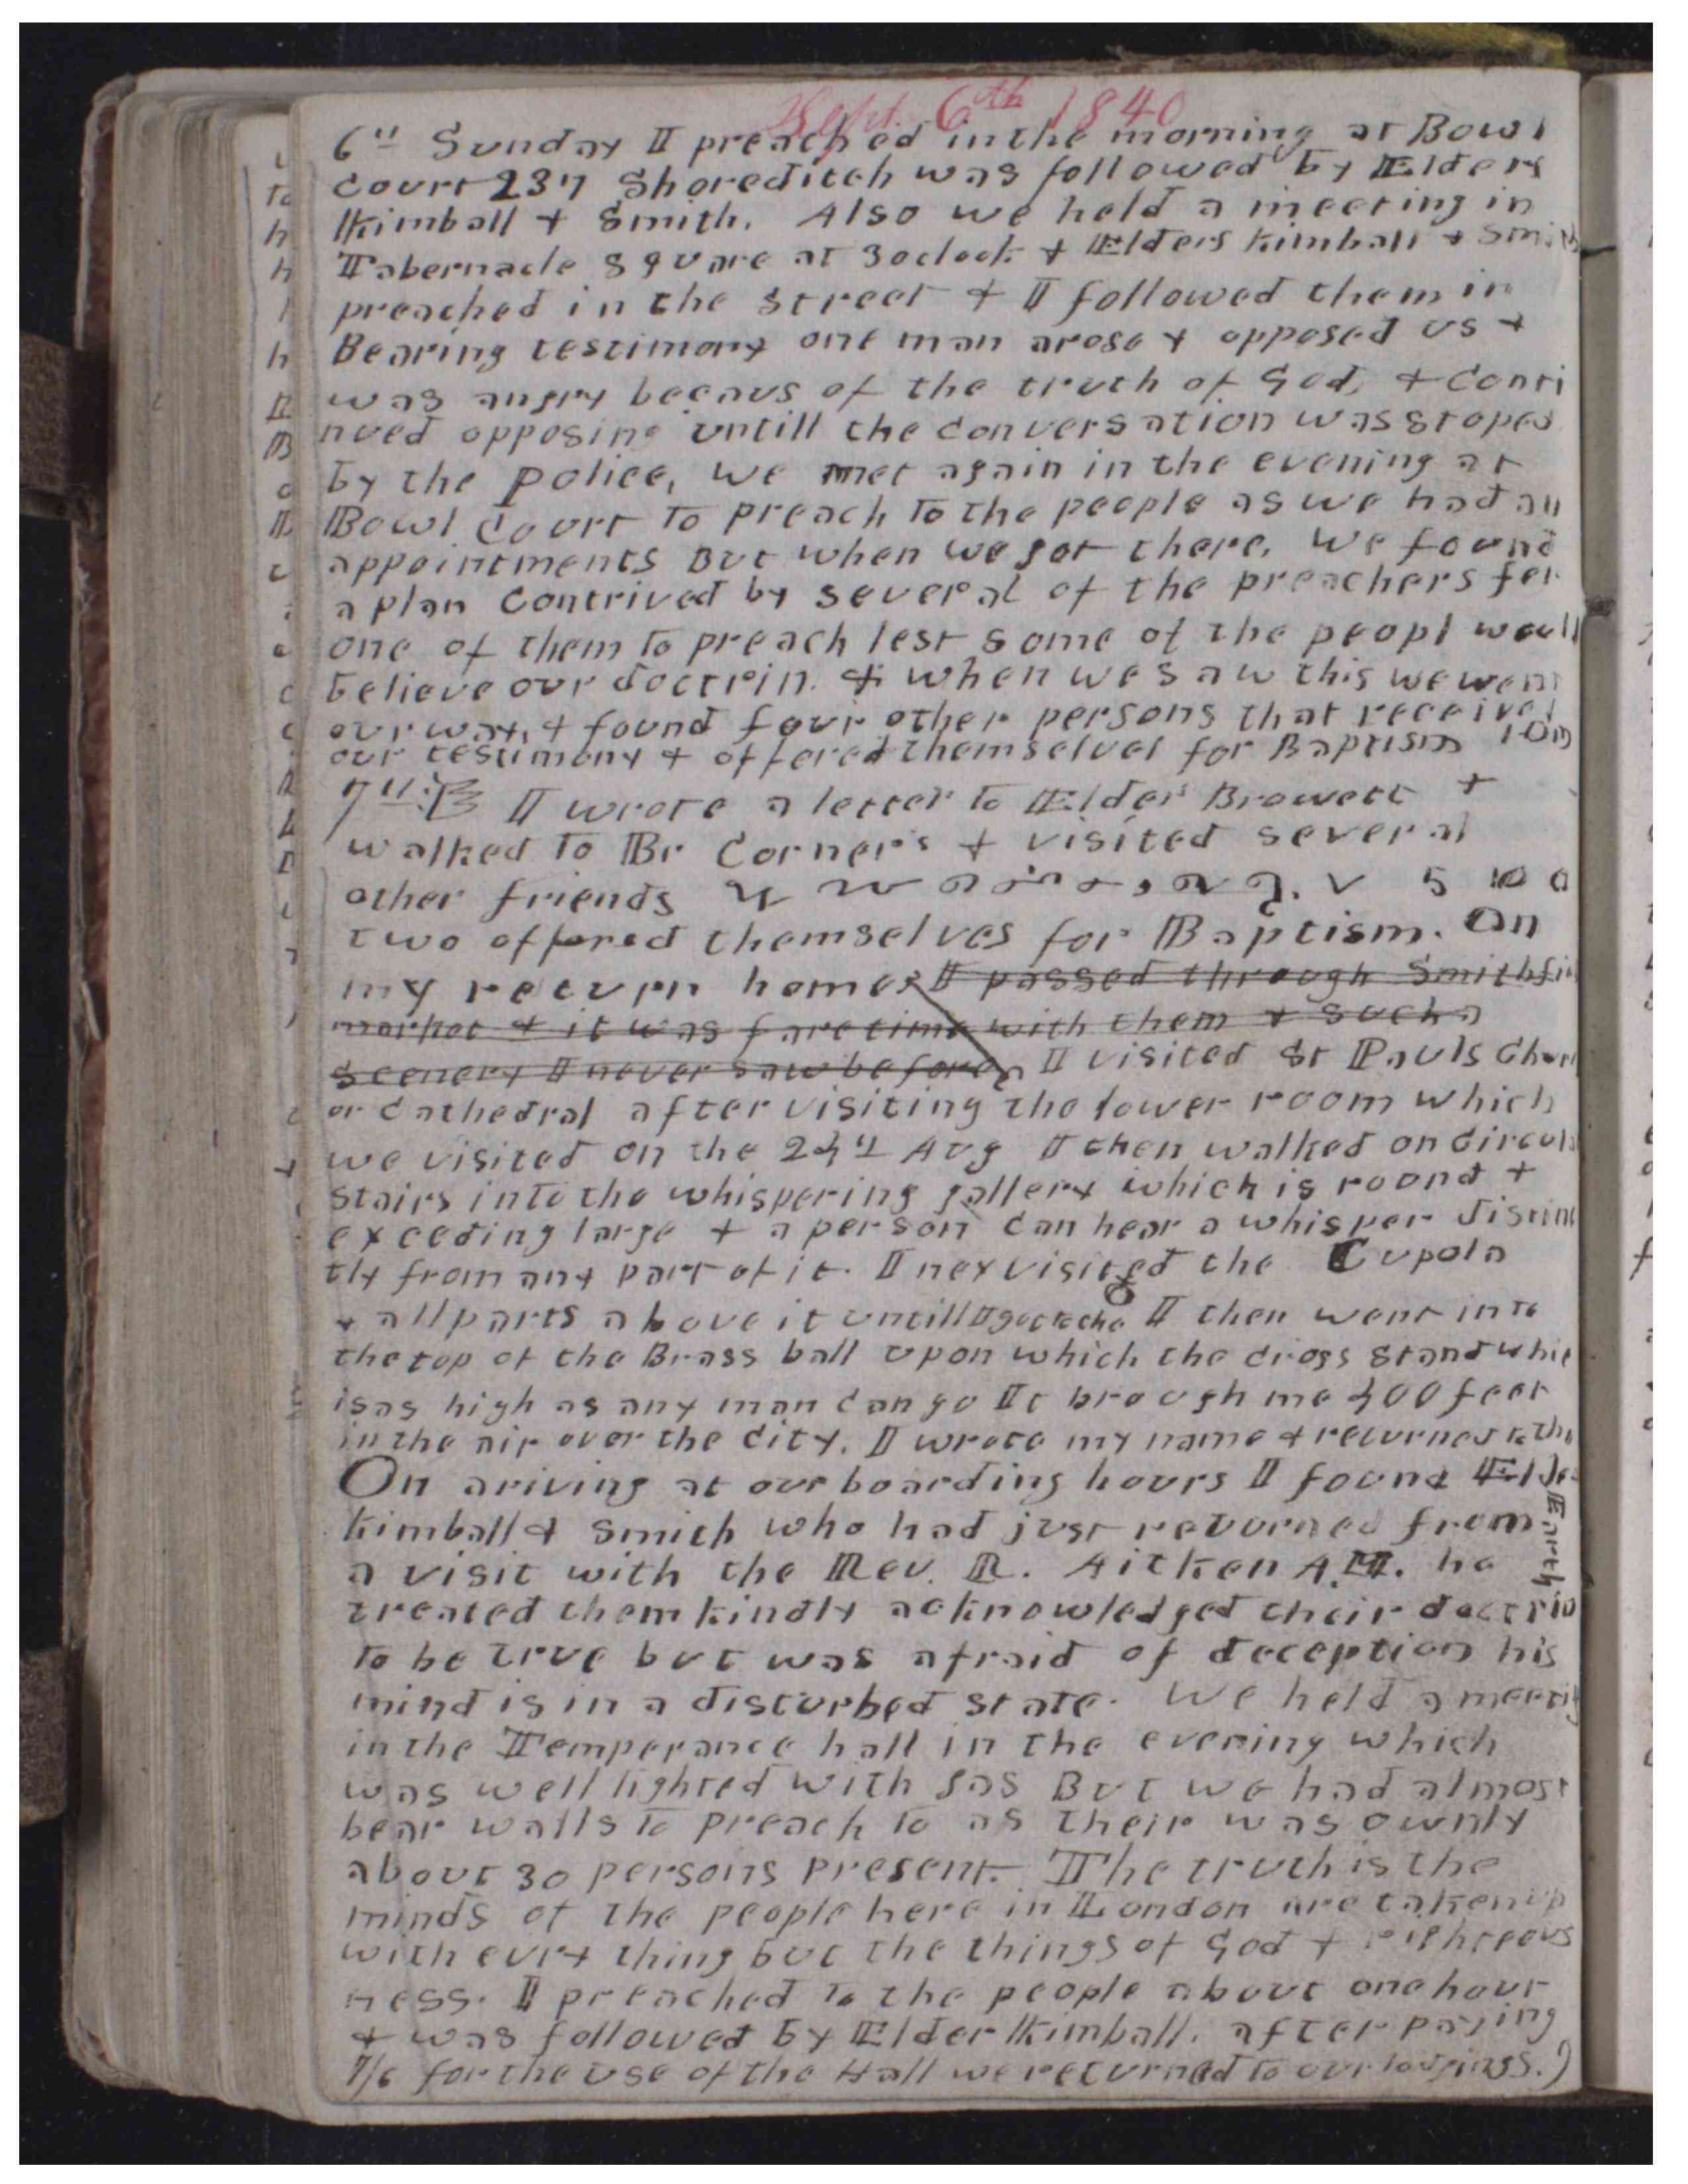 Sept. 6th 1840
6th Sunday I preached in the morning at Bowl
Court 237 Shoreditch was followed by Elders
Kimball & Smith. Also we held a meeting in
Tabernacle Square at 3 oclock & Elders Kimball & Smith
preached in the street & I followed them in
Bearing testimony one man arose & opposed us &
was angry becaus of the truth of God, & Conti
nued opposing untill the conversation was stoped
by the police, we met again in the evening at
Bowl Court to preach to the people as we had an
appointments But when we got there, we found
a plan contrived by several of the preachers for
one of them to preach lest some of the peopl would
believe our doctrin. & when we saw this we went
our way, & found four other persons that received
our testimony & offered themselves for Baptism 10m
7th I wrote a letter to Elder Browett &
walked to Br Corner's & visited several
other friends
two offered themselves for Baptism. On
my return home I passed through Smithfi
market & it was fare time with them & such a
scenery I never saw before I visited St Pauls Chur
or Cathedral after visiting the lower room which
we visited on the 24th Aug I then walked on circul
stairs into the whispering gallery which is round &
exceeding large & a person can hear a whisper distinc
tly from any part of it. I nex visited the Cupola
& all parts above it untill I got to the I then went into
the top of the Brass ball upon which the cross stand whic
is as high as any man can go It brough me 400 feet
in the air over the city. I wrote my name & returned to the
Earth
On ariving at our boarding hours I found Elder
Kimball & Smith who had just returned from
a visit with the Rev. R. Aitken A.M. he
treated them kindly acknowledged their doctrin
to be true but was afraid of deception his
mind is in a disturbed state. We held a meetig
in the Temperance hall in the evening which
was well lighted with gas But we had almost
bear walls to preach to as their was ownly
about 30 persons present. The truth is the
minds of the people here in London are taken up
with evry thing but the things of God & righteous
ness. I preached to the people about one hour
& was followed by Elder Kimball. after paying
7/6 for the use of the Hall we returned to our lodgings.)